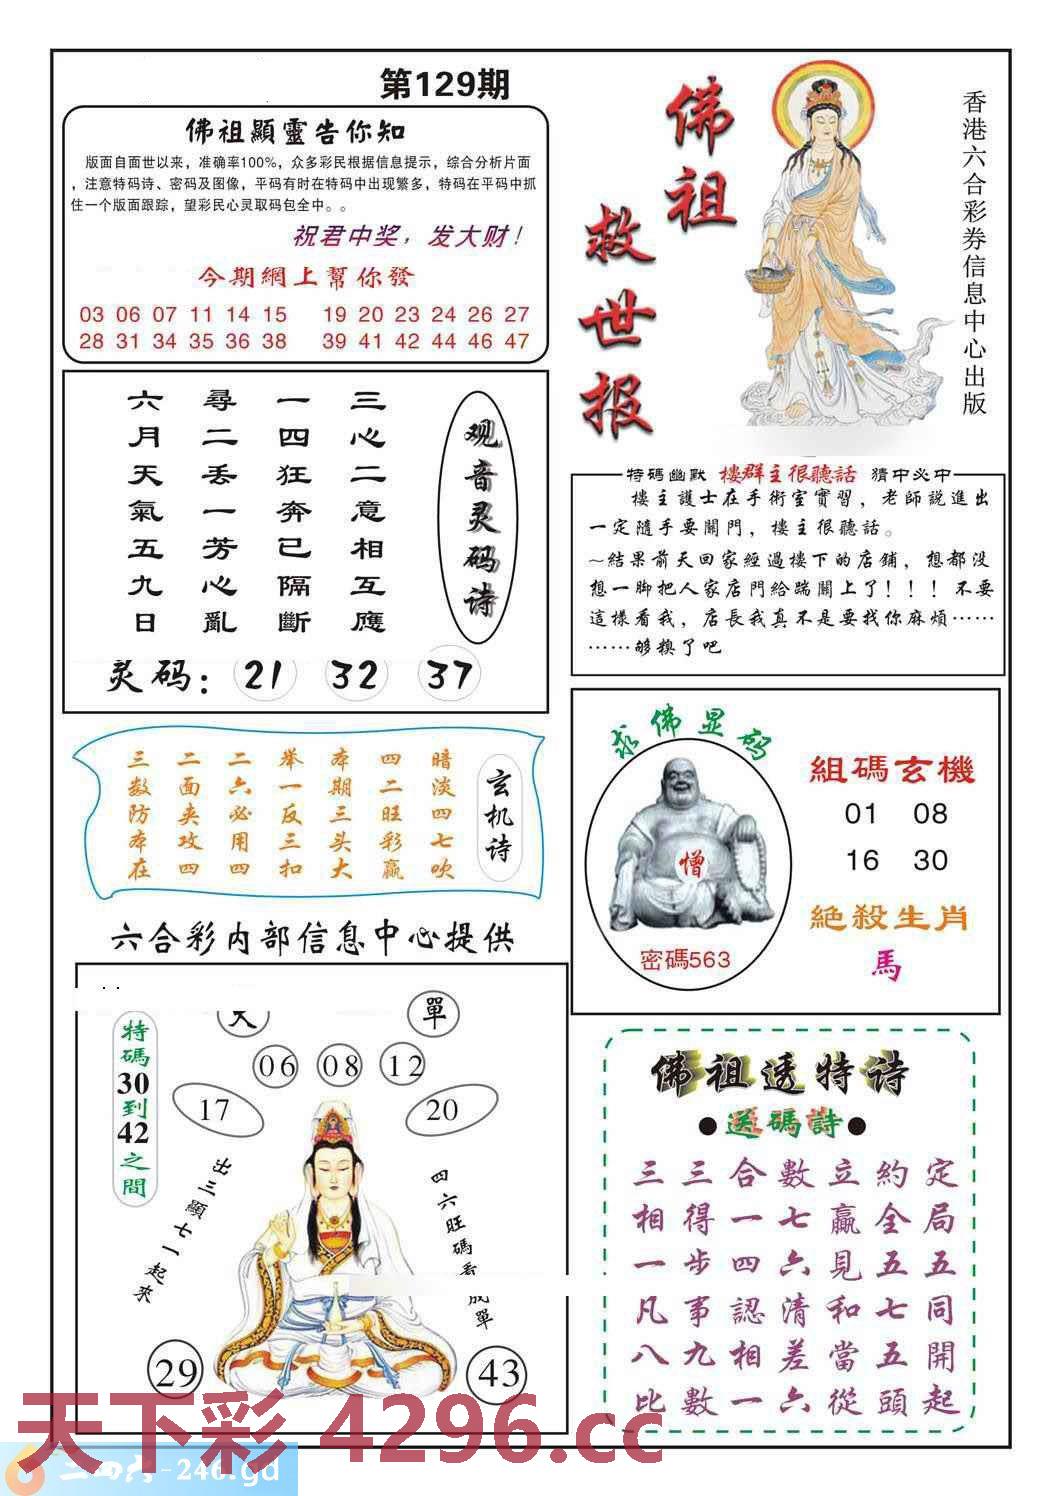 第129期
佛祖顯靈告你知
版面自面世以来，准确率100%，众多彩民根据信息提示，综合分析片面
，注意特码诗、密码及图像，平码有时在特码中出现繁多，特码在平码中抓
住一个版面跟踪，望彩民心灵取码包全中。。
祝君中奖，发大财！
今期網上幫你發
03 06 07 11 14 15 19 20 23 24 26 27
28 31 34 35 36 38 39 41 42 44 46 47
佛祖
救世报
香港六合彩券信息中心出版
观音灵码诗
三心二意相互應
一四狂奔已隔斷
尋二丢一芳心亂
六月天氣五九日
灵码：21 32 37
特碼幽默 樓群主很聽話 猜中必中
樓主護士在手術室實習，老師説進出
一定隨手要關門，樓主很聽話。
～結果前天回家經過樓下的店鋪，想都没
想一脚把人家店門給踹關上了！！！不要
這樣看我，店長我真不是要找你麻煩……
……够糗了吧
玄机诗
暗淡四七吹
四二旺彩赢
本期三头大
举一反三扣
二六必用四
二面夹攻四
三数防本在
求佛显码
憎
密碼563
組碼玄機
01 08
16 30
絶殺生肖
馬
六合彩内部信息中心提供
單
06 08 12
17 20
特碼30到42之間
出三顯七一起來
四六旺碼看成單
29 43
佛祖透特诗
●送碼詩●
三三合數立約定
相得一七贏全局
一步四六見五五
凡事認清和七同
八九相差當五開
比數一六從頭起
天下彩 4296.cc
二四六-246.gd